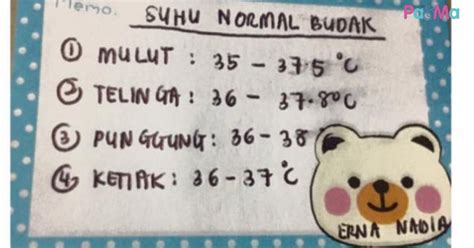 Memo.
Pa&Ma
SUHU NORMAL BUDAK
① MULUT : 35 – 37.5 °C
② TELINGA : 36 – 37.8°C
③ PUNGGUNG : 36 – 38 °
④ KETIAK : 36 – 37 °C
ERNA NADIA